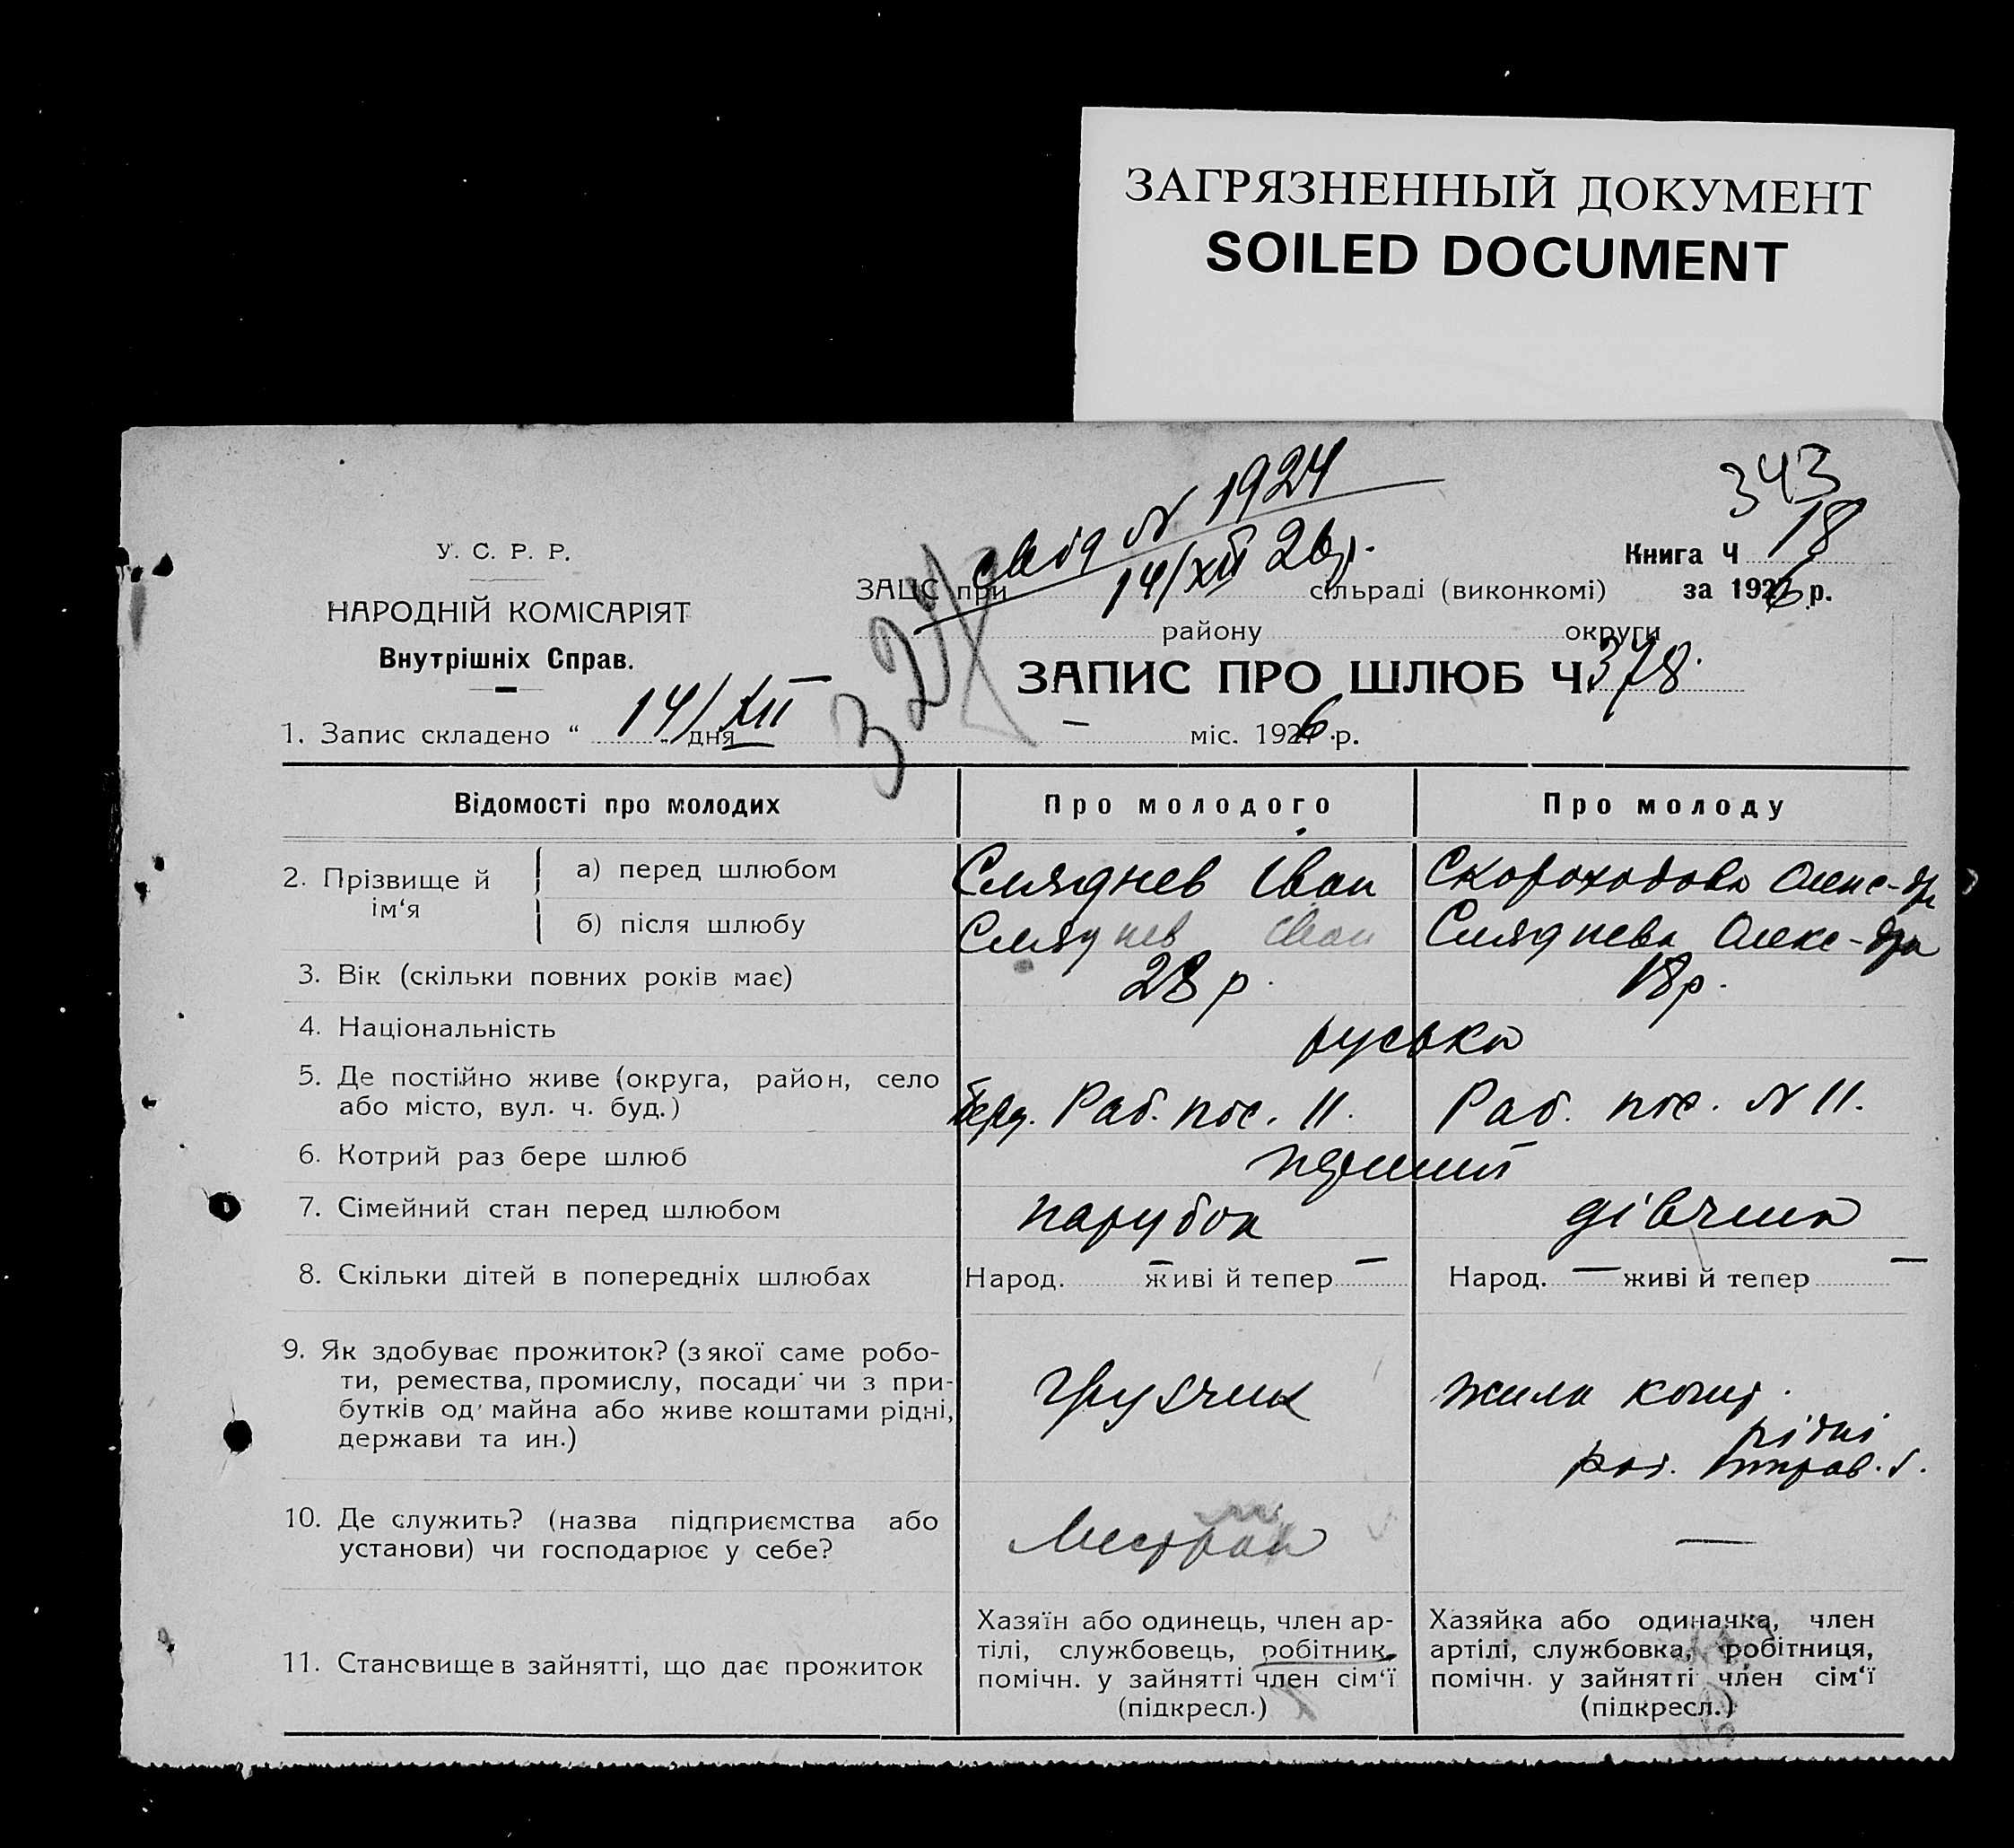 ЗАГРЯЗНЕННЫЙ ДОКУМЕНТ
SOILED DOCUMENT
343
свід N 1924
14/XII 26р.
У. С. Р. Р.
НАРОДНІЙ КОМІСАРІЯТ
Внутрішніх Справ.
Книга Ч 18
за 1926 р.
ЗАЦС при сільраді (виконкомі)
району округи
324
ЗАПИС ПРО ШЛЮБ Ч. 378.
1. Запис складено “ 14/XII дня — міс. 1926 р.
Відомості про молодих Про молодого Про молоду
2. Прізвище й ім‘я
а) перед шлюбом Сляднев Іван Скороходова Олекс-др
б) після шлюбу Сляднев Іван Сляднева Олекс-дра
3. Вік (скільки повних років має) 28 р. 18 р.
4. Національність руська
5. Де постійно живе (округа, район, село
або місто, вул. ч. буд.) Раб. пос. 11. Раб. пос. N 11.
6. Котрий раз бере шлюб перший
7. Сімейний стан перед шлюбом парубок дівчина
8. Скільки дітей в попередніх шлюбах Народ. — живі й тепер — Народ. — живі й тепер —
9. Як здобуває прожиток? (з якої саме робо-
ти, ремества, промислу, посади чи з при-
бутків од майна або живе коштами рідні,
держави та ин.)
грузчик
жила кошт.
рідні
10. Де служить? (назва підприємства або
установи) чи господарює у себе? —
11. Становище в зайнятті, що дає прожиток
Хазяїн або одинець, член ар-
тілі, службовець, робітник,
помічн. у зайнятті член сім‘ї
(підкресл.)
Хазяйка або одиначка, член
артілі, службовка, робітниця,
помічн. у зайнятті член сім‘ї
(підкресл.)